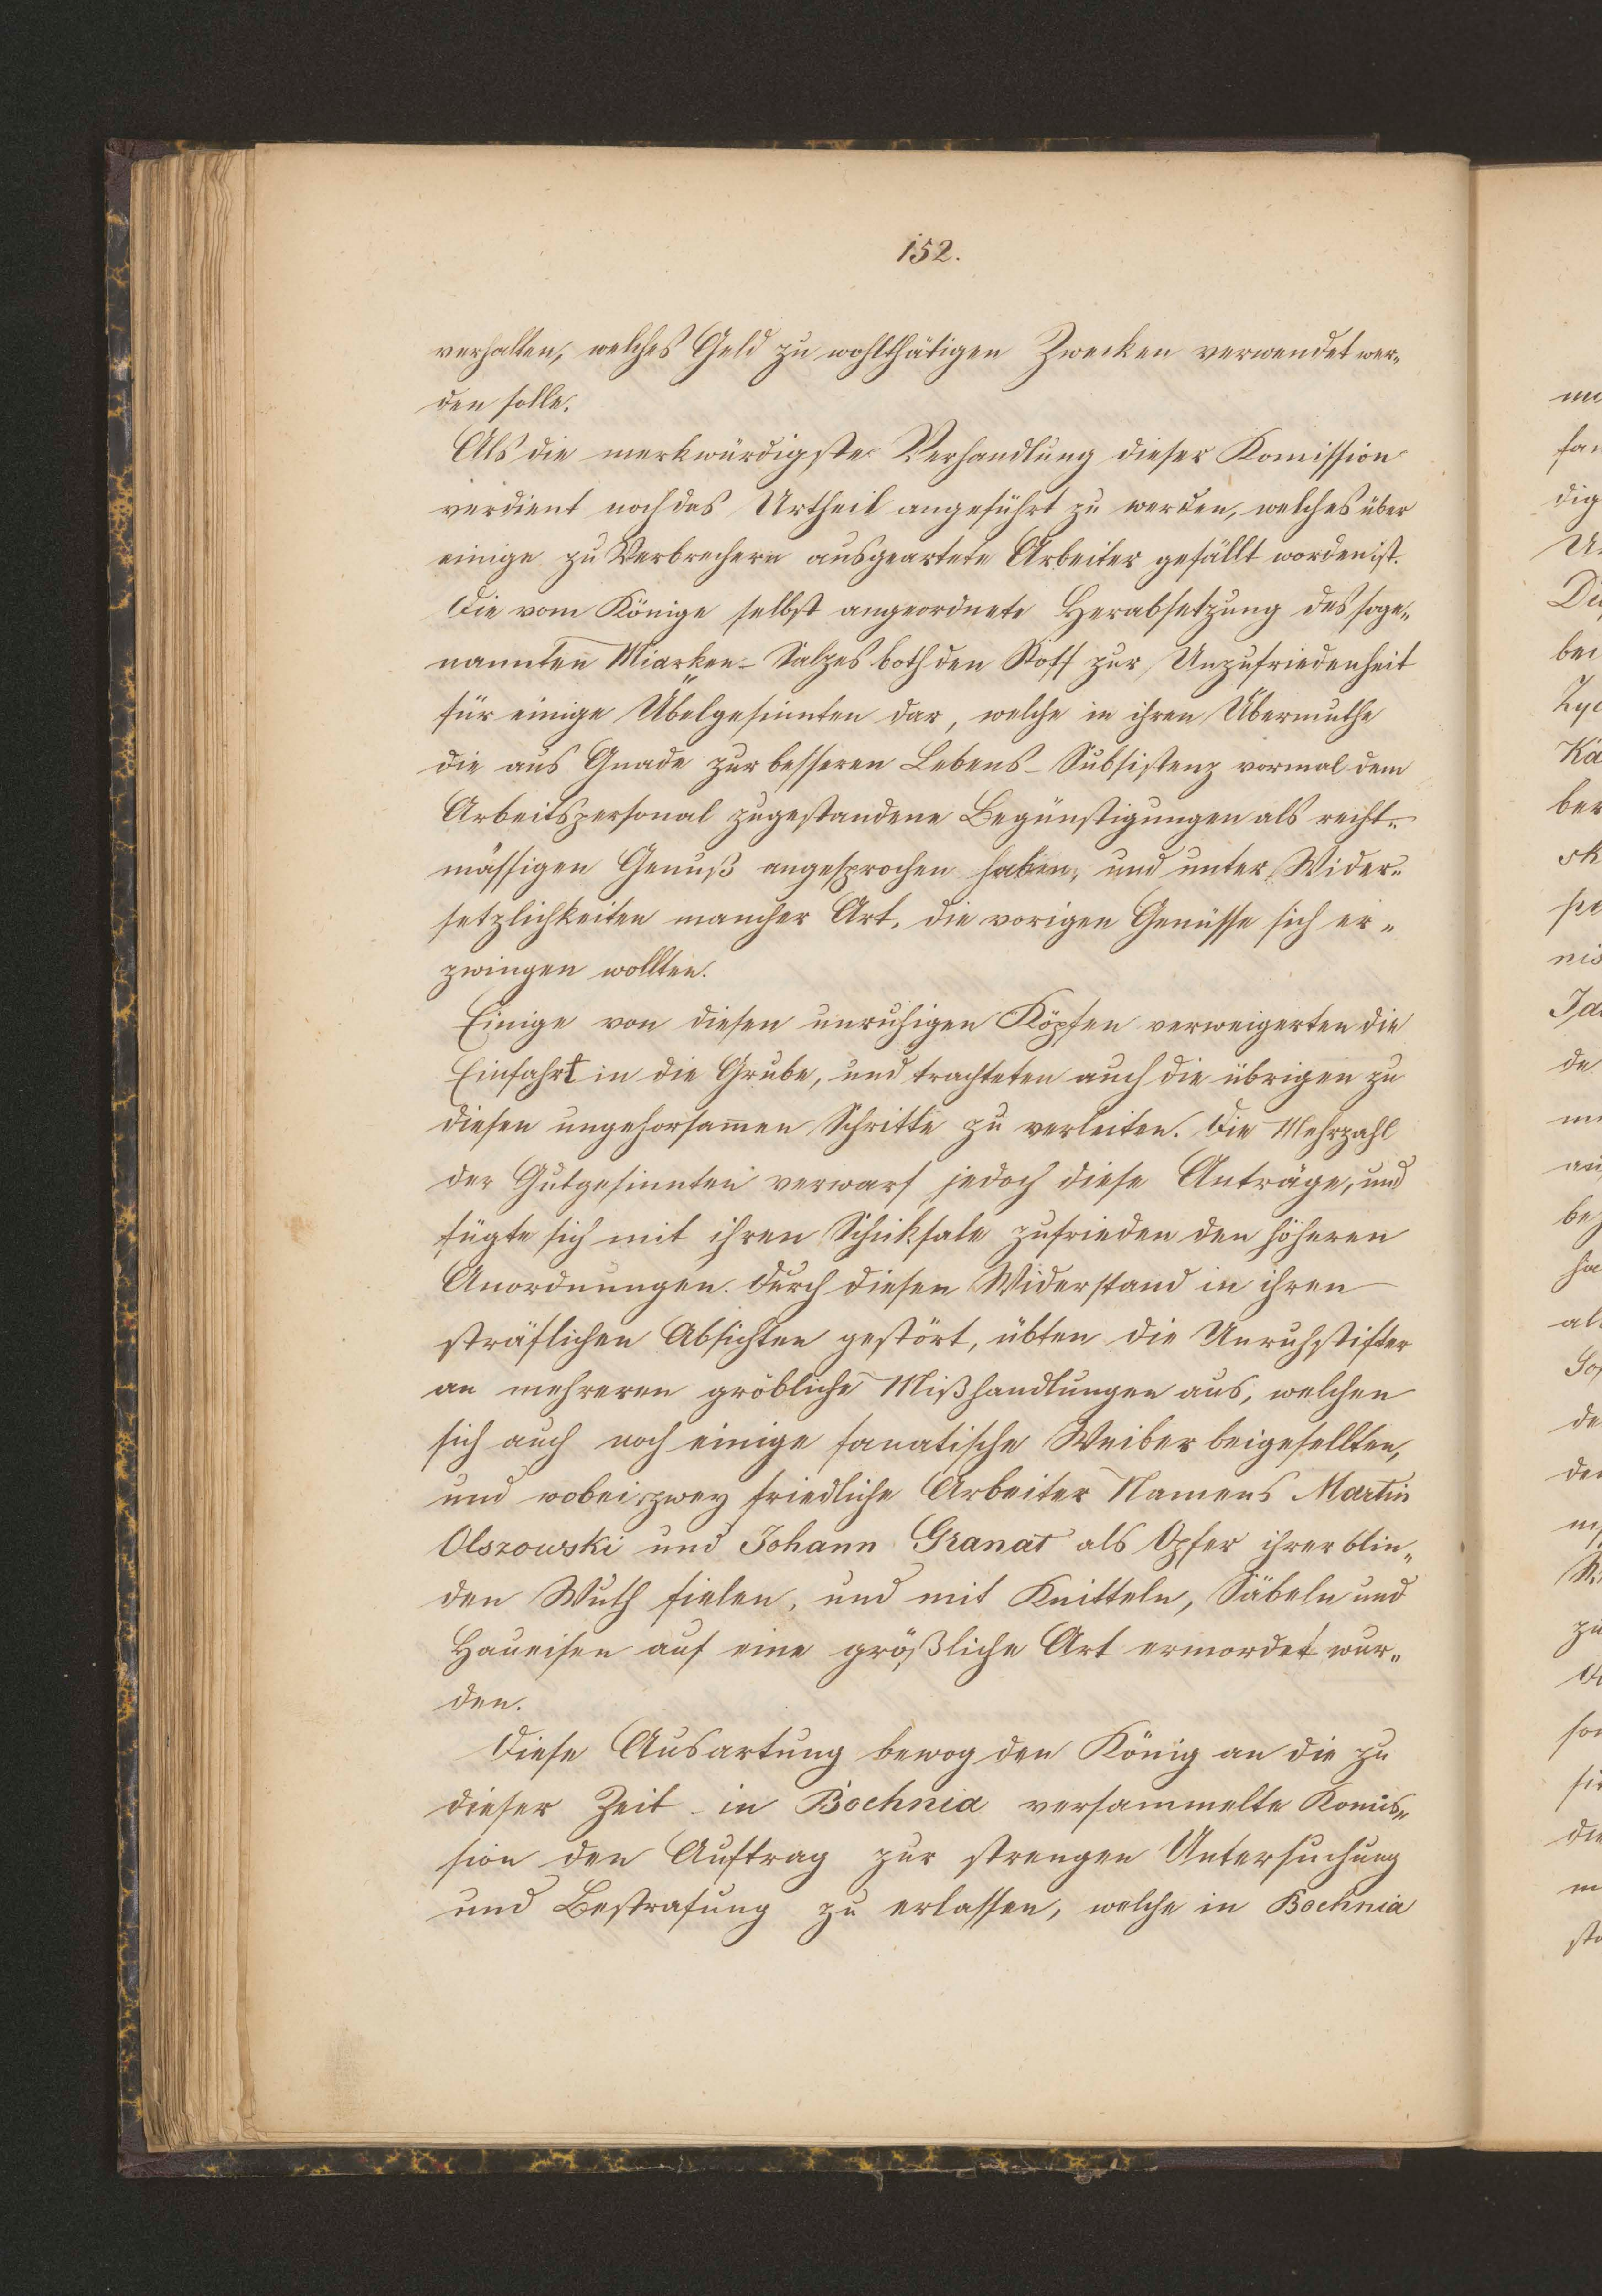 152.
verhalten, welches Geld zu wohlthätigen Zwecken verwendet wer„
den solle.
Als die merkwürdigste Verhandlung dieser Komission
verdient noch das Urtheil angeführt zu werden, welches über
einige zu Verbrechern ausgeartete Arbeiter gefällt worden ist.
Die vom Könige selbst angeordnete Herabsetzung des soge„
nannten Miarken-Salzes both den Stoff zur Unzufriedenheit
für einige Übelgesinnten dar, welche in ihren Übermuthe
die aus Gnade zur besseren Lebens-Subsistenz vormal dem
Arbeitspersonal zugestandene Begünstigungen als recht„
mässigen Genuß angesprochen haben, und unter Wider„
setzlichkeiten mancher Art, die vorigen Genüsse sich er„
zwingen wollten.
Einige von diesen unruhigen Köpfen verweigerten die
Einfahrt in die Grube, und trachteten auch die übrigen zu
diesen ungehorsam̄en Schritte zu verleiten. Die Mehrzahl
der Gutgesinnten verwarf jedoch diese Anträge, und
fügte sich mit ihren Schicksale zufrieden den höheren
Anordnungen. Durch diesen Widerstand in ihren
sträflichen Absichten gestört, übten die Unruhstifter
an mehreren gröbliche Mißhandlungen aus, welchen
sich auch noch einige fanatische Weiber beigesellten,
und wobei zwey friedliche Arbeiter Namens Martin
Olszowski und Johann Granat als Opfer ihrer blin„
den Wuth fielen, und mit Knitteln, Säbeln und
Haueisen auf eine größliche Art ermordet wur„
den.
Diese Ausartung bewog den König an die zu
dieser Zeit in Bochnia versammelte Komis„
sion den Auftrag zur strengen Untersuchung
und Bestrafung zu erlassen, welche in Bochnia